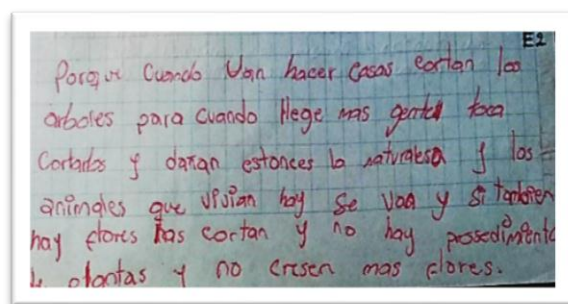 E2
Porque Cuando Van hacer Casas cortan los
arboles para cuando llege mas gente toca
Cortarlos y dañan estonces la naturalesa y los
animales que vivian hay se van y si tambien
hay flores las cortan y no hay possedimento
de plantas y no cresen mas flores.